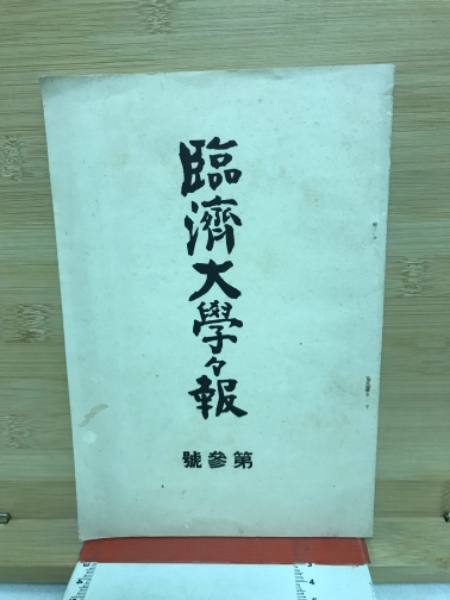 臨濟大學々報
第參號